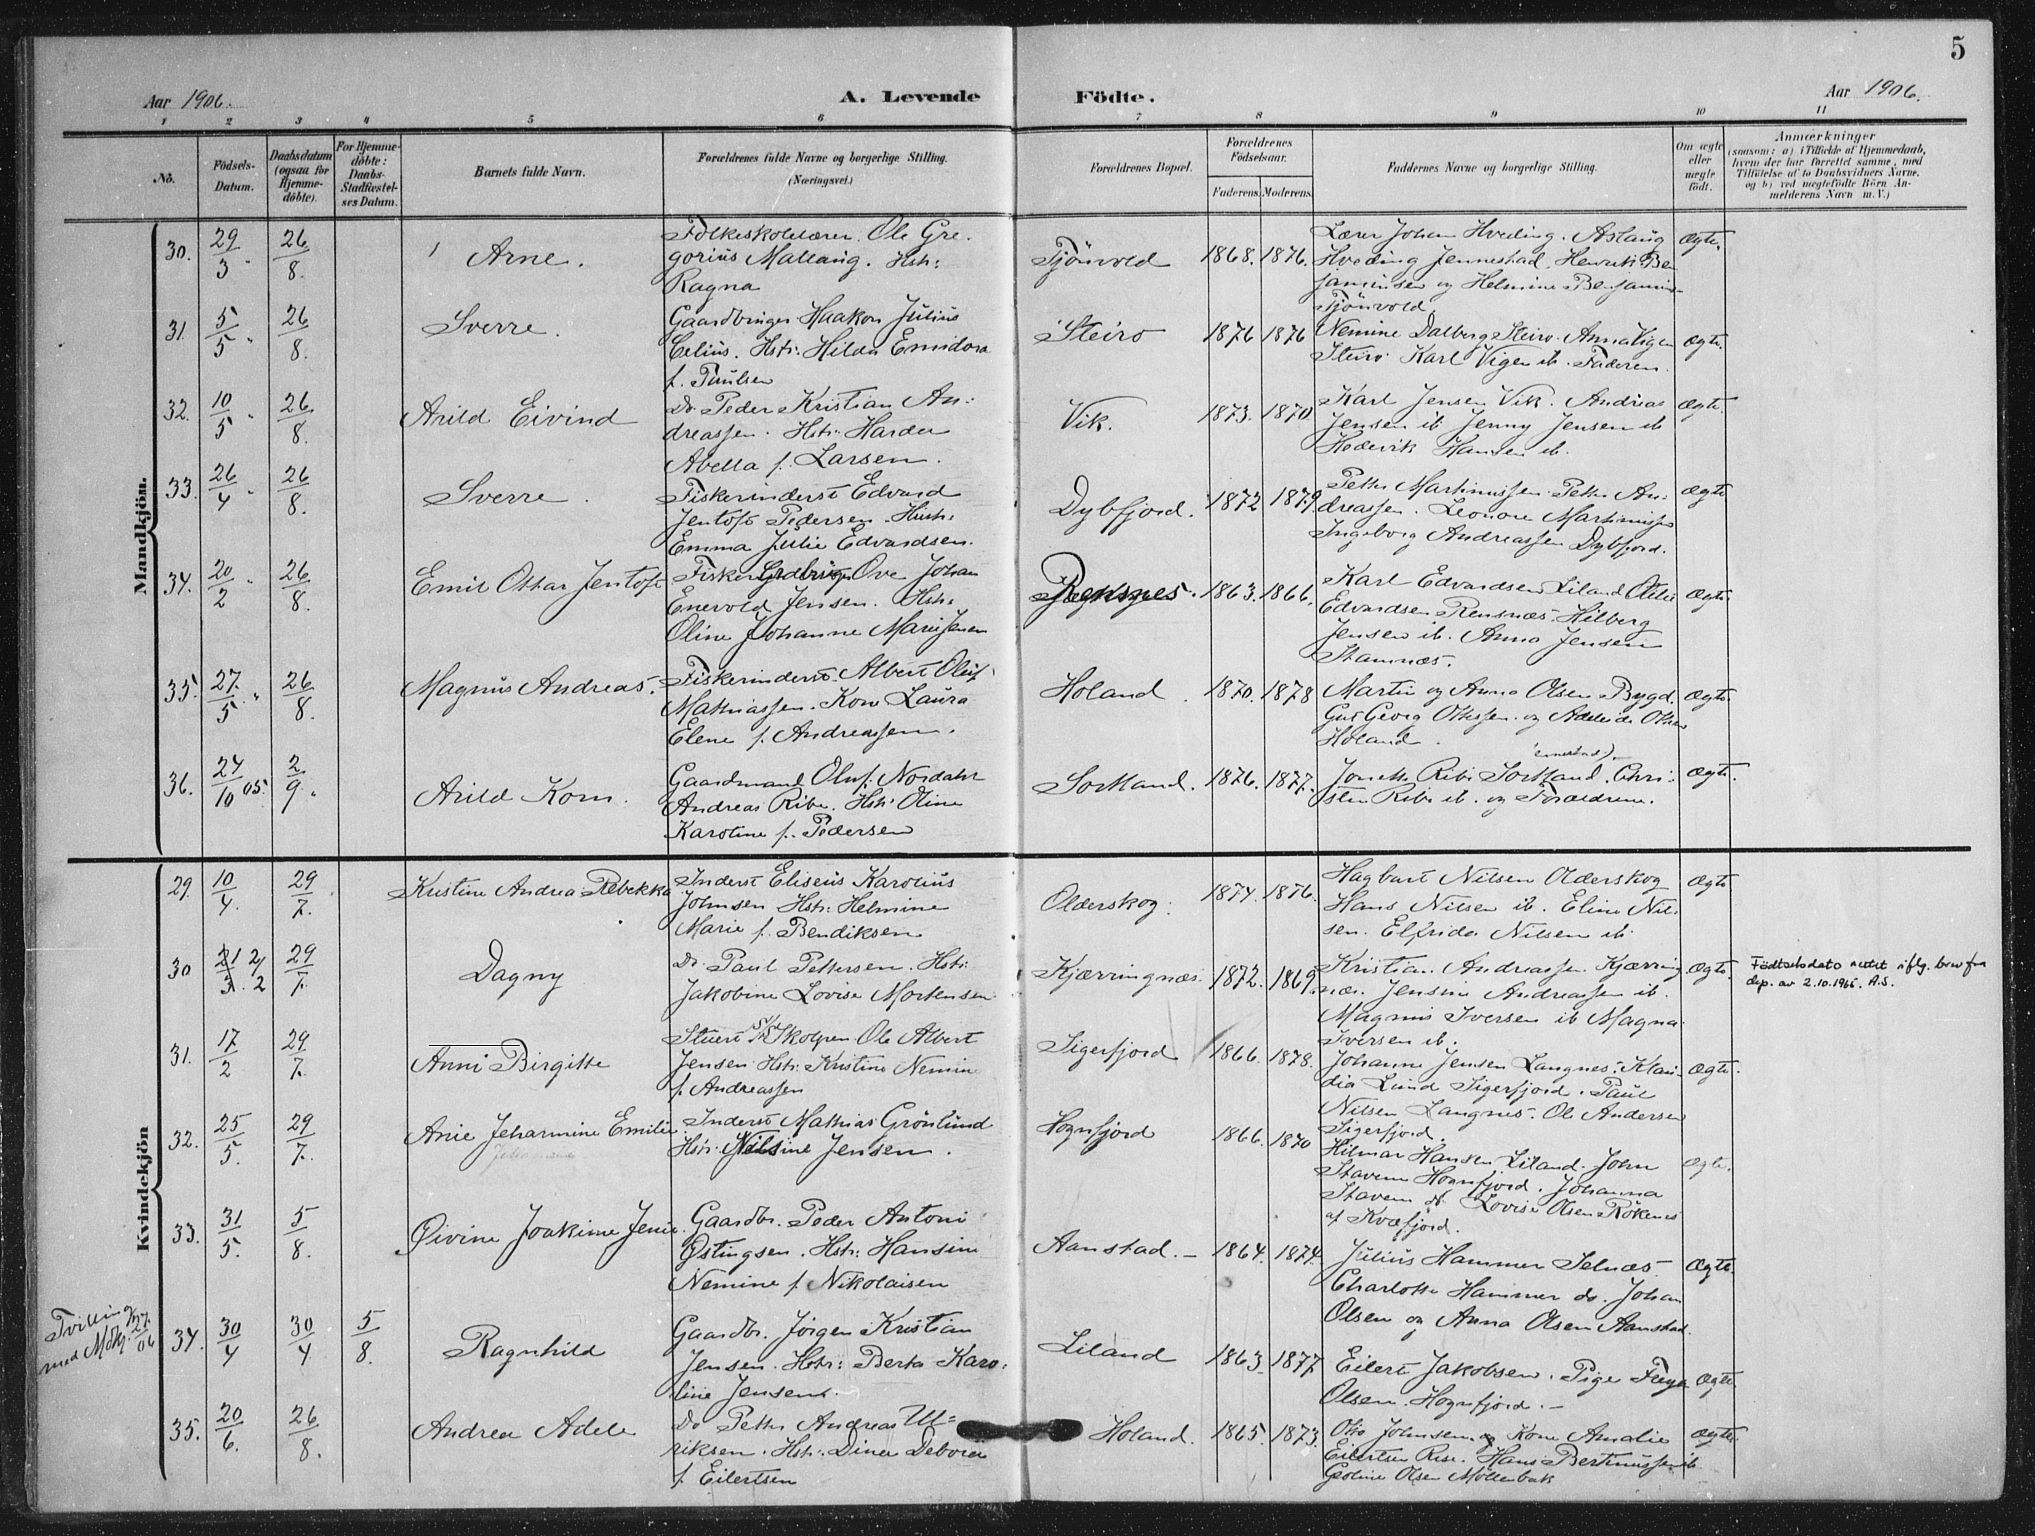 5
Aar 1906. A. Levende Födte. Aar 1906.
1 2 3 4 5 6 7 8 9 10 11
No.
Födsels-
Datum.
Daabsdatum
(ogsaa for
Hjemme-
döbte).
For Hjemme-
döbte:
Daabs-
Stadfæstel-
ses Datum.
Barnets fulde Navn.
Forældrenes fulde Navne og borgerlige Stilling.
(Næringsvei.)
Forældrenes Bopæl.
Forældrenes
Födselsaar.
Faderens. Moderens.
Faddernes Navne og borgerlige Stilling.
Om ægte
eller
uægte
födt.
Anmærkninger
(saasom: a) i Tilfælde af Hjemmedaab,
hvem der har forrettet samme, med
Tilföielse af to Daabsvidners Navne,
og b) ved uægtefödte Börn An-
melderens Navn m. V.)
Mandkjön.
30. 29/3 26/8. Arne.
Folkeskolelærer Ole Gre-
gorius Mallang. Hstr:
Ragna
Tjönvold 1868. 1876.
Lærer Johan Hveding. Aslaug
Hveding Jennestad. Henrik Ben
jaminsen og Helmine Benjamin-
Tjönvold
Ægte.
31. 5/5 26/8. Sverre.
Gaardbruger Haakon Julius
Celius. Hstr: Hilda Emidora
f. Paulsen
Steiro 1876 1876
Nemine Dalberg Steiro. Anna Vigen
Steiro Karl Vigen ib. Faderen.
Ægte.
32. 10/5 26/8. Arild Eivind
Do Peder Kristian An-
dreassen. Hstr: Harda
Abella f. Larsen.
Vik. 1873. 1870
Karl Jensen Vik. Andreas
Jensen ib Jenny Jensen ib
Hedevik Hansen ib.
Ægte.
33. 26/4 26/8. Sverre.
Fiskerinderst Edvard
Jentoft Pedersen. Hustr:
Emma Julie Edvardsen.
Dybfjord. 1872 1879
Petter Martinussen Petter An-
dreassen. Leonore Martinussen
Ingeborg Andreassen Dybfjord.
Ægte
34. 20/2 26/8. Emil Ottar Jentoft
Fisker Grdbruger Ove Johan
Enevold Jensen. Hstr:
Oline Johanne Marie Jensen
Rensnes. 1863. 1866.
Karl Edvardsen Liland Otilie
Edvardsen Rensnæs. Hilberg
Jensen ib. Anna Jensen
Stamnæs.
Ægte
35. 27/5 26/8. Magnus Andreas.
Fiskerinderst. Albert Oluf
Mathiassen. Kone Laura
Elene f. Andreassen.
Holand 1870. 1878
Martin og Anna Olsen Bygd.
Gut Georg Ottesen og Adeleide Olsen
Holand.
Ægte.
36. 24/10 05. 2/9. Arild Korn.
Gaardmand Oluf Nordahl
Andreas Ribe. Hstr: Oline
Karoline f. Pedersen
Sortland. 1876. 1877.
Jonette Ribe Sortland. Chri-
sten Ribe ib. og Forældrene.
Ægte.
Kvindekjön
29. 10/4. 29/7. Kristine Andrea Rebekka
Inderst Eliseus Karolius
Johnsen Hstr: Helmine
Marie f. Bendiksen
Olderskog. 1874. 1876.
Hagbart Nilsen Olderskog
Hans Nilsen ib. Eline Nil-
sen. Elfrida Nilsen ib.
Ægte
30 21/3. 2/2 29/7. Dagny
Do Paul Pettersen. Hstr:
Jakobine Lovise Mortensen
Kjærringnæs. 1872. 1869.
Kristian Andreassen Kjærring
næs. Jensine Andreassen ib.
Magnus Iversen ib Magna
Iversen ib.
Ægte.
Födselsdato rettet iflg. brev fra
dep. av 2.10.1966. A.S.
31. 17/2 29/7. Anni Birgitte
Stuert S/S Skolpen Ole Albert
Jensen Hstr: Kristine Nemine
f. Andreassen
Sigerfjord 1866. 1878.
Johanne Jensen Langnes. Klau-
dia Lund Sigerfjord. Paul
Nilsen Langnes. Ole Andersen
Sigerfjord.
Ægte.
32. 25/5. 29/7. Anie Jeharmine Emilie
Inderst Mathias Grönlund
Hstr: Nilsine Jensen.
Hognfjord 1866. 1870
Hilmar Hansen Liland. John
Stavem Hognfjord. Johanna
Stavem do. Lovise Olsen Rökenes
af Kvæfjord.
Ægte.
33. 31/5. 5/8. Øivine Joakime Jenie.
Gaardbr. Peder Antoni
Ostingsen. Hstr: Hansine
Nemine f. Nikolaisen
Aanstad. 1864. 1874.
Julius Hammer Selnæs
Charlotte Hammer do. Johan
Olsen og Anna Olsen Aanstad.
Ægte.
Tvilling
med Mdkj.
34. 30/4 30/4 5/8. Ragnhild
Gaardbr. Jörgen Kristian
Jensen. Hstr: Berta Karo-
line Jensen.
Liland 1863 1877
Eilert Jakobsen. Pige Freya
Olsen. Hognfjord.
Ægte.
35. 20/6. 26/8. Andrea Adele
Do Petter Andreas Ul-
riksen. Hstr: Dina Deborah
f. Eilertsen
Holand. 1865. 1873.
Otto Johnsen og Kone Amalie
Eilertsen Rise. Hans Bertinussen ib
Goline Olsen Möllebak
Ægte.